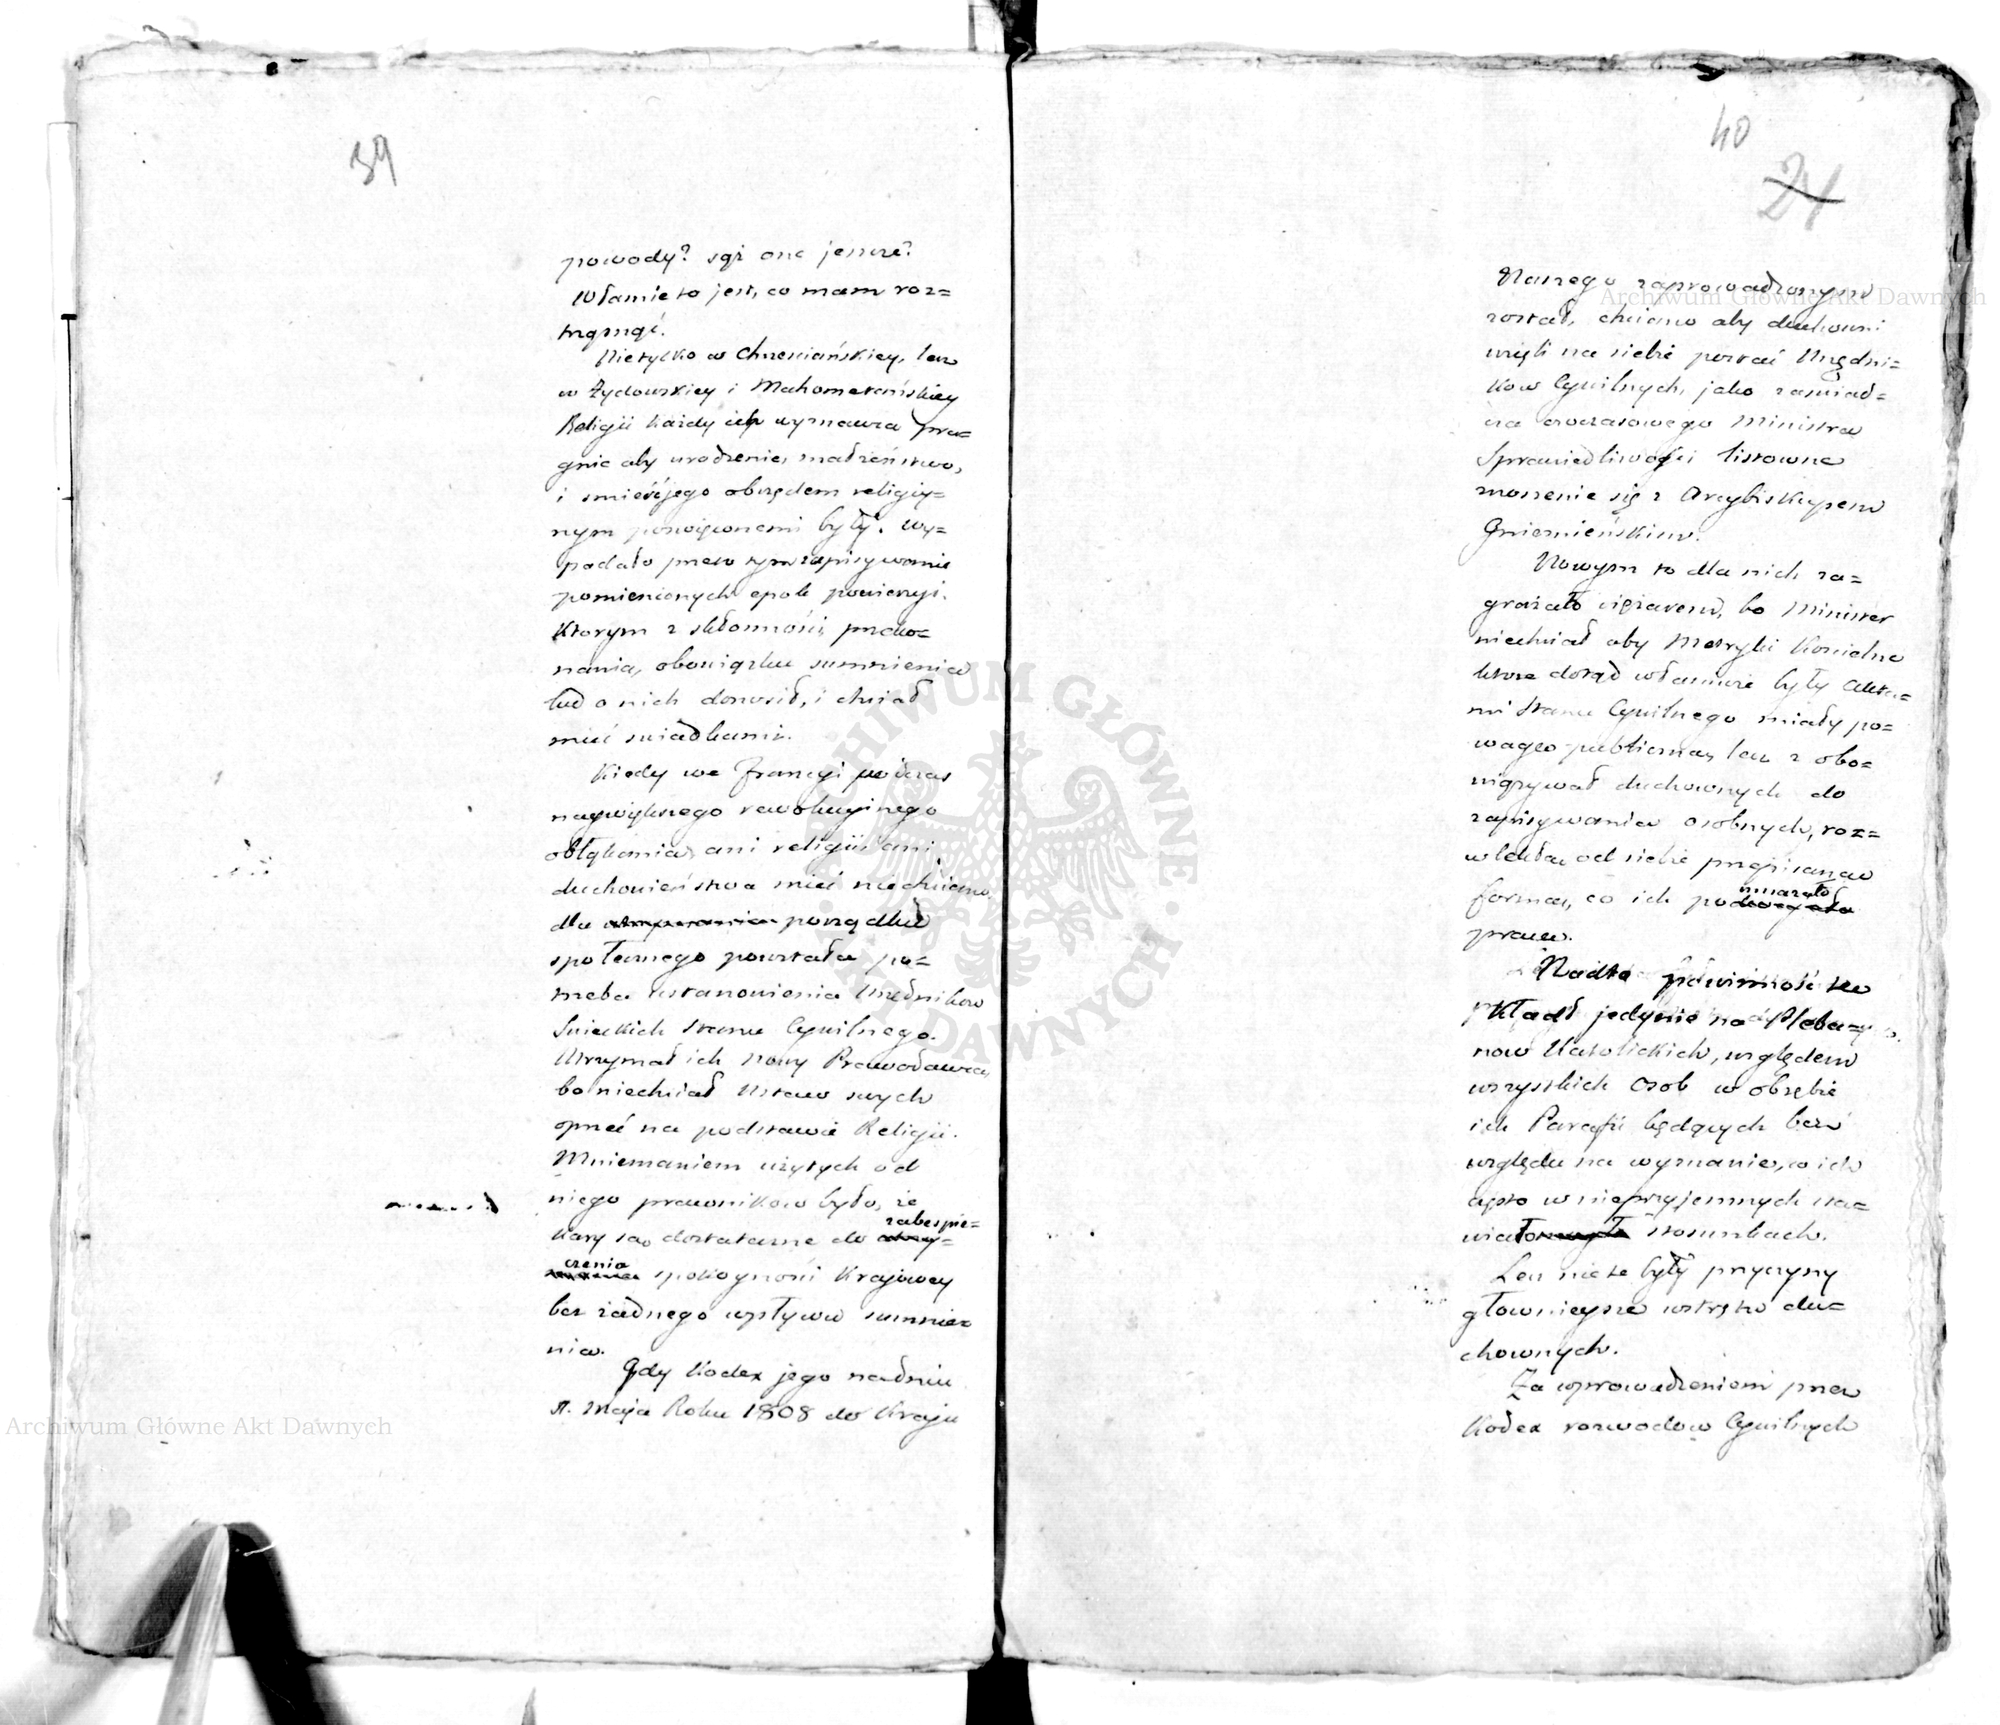 39
powody? sąż one jeszcze?
Właśnie to jest, co mam roz=
trząsnąć.
Nietylko w Chrzesciańskiey, lecz
w Żydowskiey i Mahometańskiey
Religii każdy ich wyznawca pra=
gnie aby urodzenie, małżeństwo,
i śmierć jego obrzędem religiy=
nym poswięconemi były. Wy=
padało przeto tym zapisywanie
pomienionych epok powierzyć.
Ktorym z skłonności, przeko=
nania, obowiązku summienia
lud o nich donosił, i chciał
mieć swiadkami.
Kiedy we Francyi podczas
naywiększego rewolucyinego
obłąkania, ani religii ani
duchowieństwa mieć niechciano
dla porządku
społecznego powstała po=
trzeba ustanowienia Urzędnikow
Swieckich stanu Cywilnego.
Utrzymał ich nowy Prawodawca,
bo niechciał Ustaw swych
oprzeć na podstawie Religii.
Mniemaniem użytych od
niego prawnikow było, że
kary są dostateczne do zabespie=
czenia spokoyności Krajowey
bez żadnego wpływu summie=
nia.
Gdy Kodex jego na dniu
1. Maja Roku 1808 do Kraju
40
21
Naszego zaprowadzonym
został, chciano aby duchowni
wzięli na siebie postać Urzędni=
kow Cywilnych, jako zaswiad=
cza owczasowego Ministra
Sprawiedliwości listowne
znoszenie się z Arcybiskupem
Gnieznieńskim.
Nowym to dla nich za=
grażało ciężarem, bo Minister
niechciał aby Metryki Kościelne
ktore dotąd właściwie były Akta=
mi Stanu Cywilnego miały po=
wagę publiczną, lecz z obo=
wiązywał duchownych do
zapisywania osobnych, roz=
wlekłą od siebie przepisaną
formą, co ich pomnażało
prace.
Nadto powinność tę
wkładł jedynie na Pleba=
now Katolickich, względem
wszystkich osob w obrębie
ich Parafii będących bez
względu na wyznanie, co ich
często w nieprzyjemnych sta=
wiało stosunkach.
Lecz nie te były przyczyny
głownieysze wstrętu du=
chownych.
Za wprowadzeniem przez
Kodex rozwodow Cywilnych
Archiwum Główne Akt Dawnych
Archiwum Główne Akt Dawnych
ARCHIWUM GŁÓWNE AKT DAWNYCH